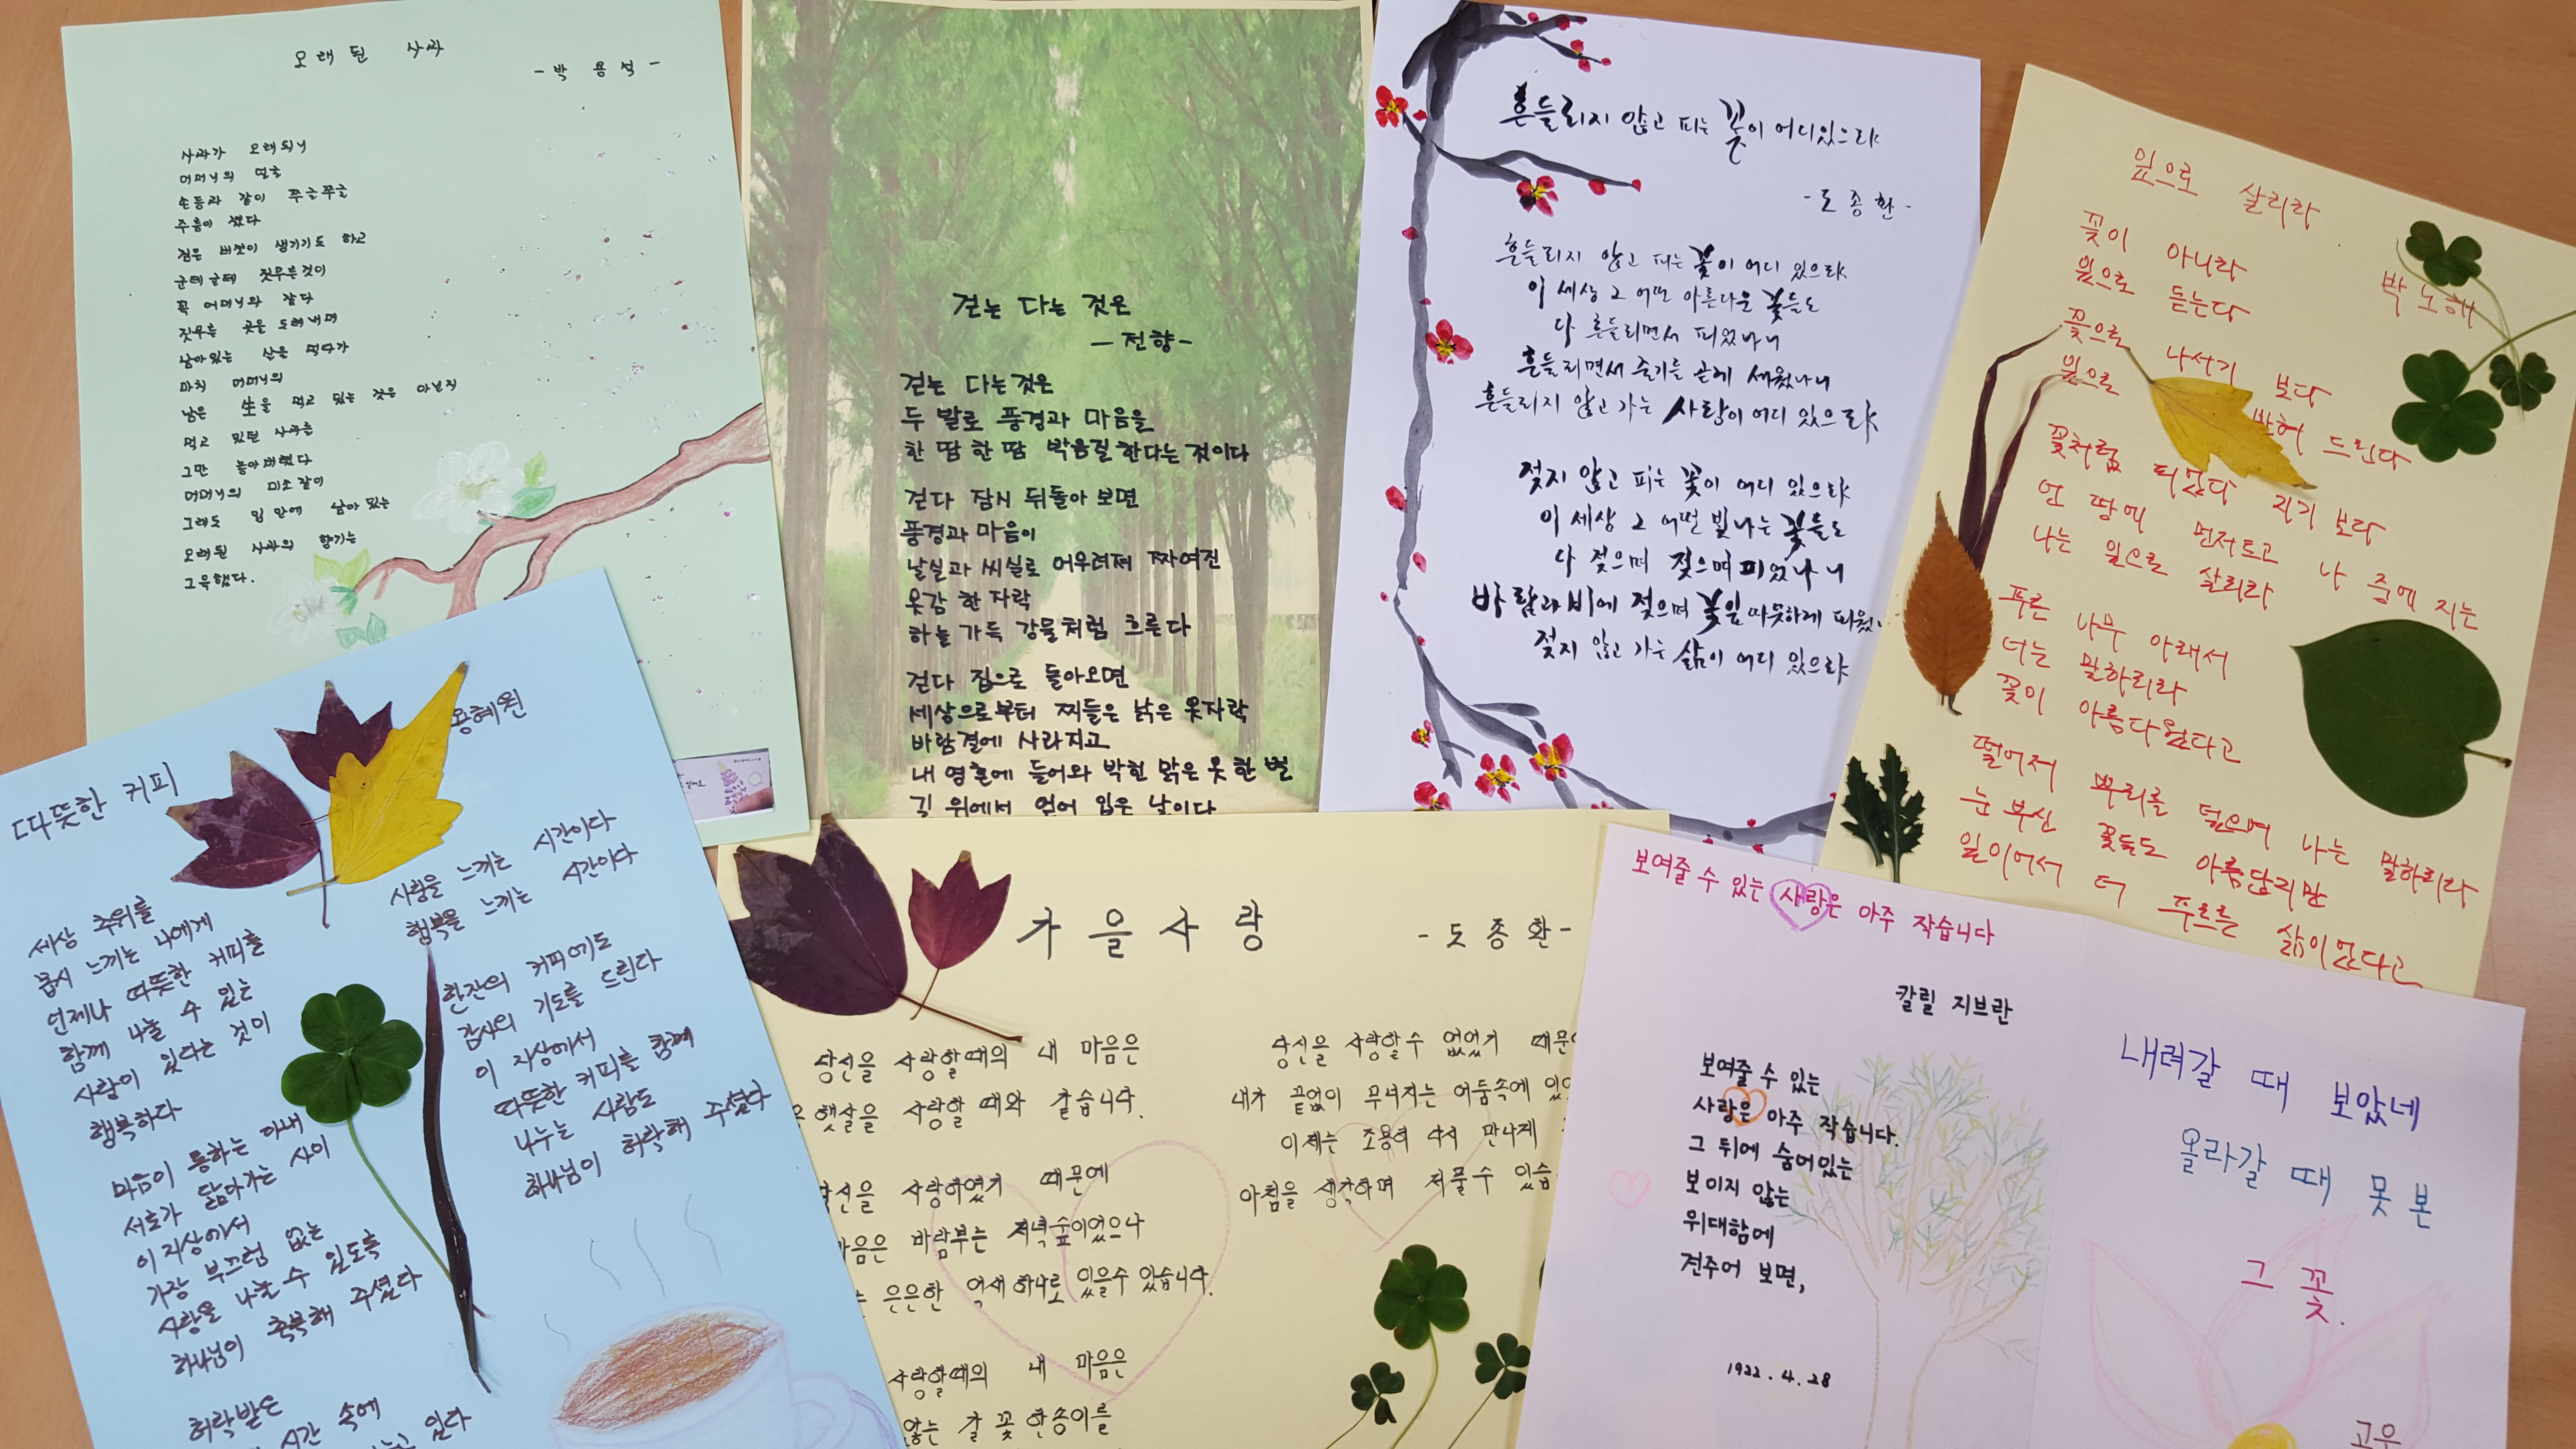 오래된 사과
- 박용석 -
사과가 오래되니
어머니의 얼굴
손등과 같이 쭈글쭈글
주름이 졌다
검은 버섯이 생기기도 하고
군데군데 짓무른것이
꼭 어머니와 같다
짓무른 곳을 도려내며
남아있는 살을 먹다가
마치 어머니의
남은 生을 먹고 있는 것은 아닌지
먹고 있던 사과를
그만 놓아버렸다
어머니의 미소같이
그래도 입안에 남아 있는
오래된 사과의 향기는
그윽했다.
걷는 다는 것은
- 전향 -
걷는 다는것은
두 발로 풍경과 마음을
한 땀 한 땀 박음질한다는 것이다
걷다 잠시 뒤돌아 보면
풍경과 마음이
날실과 씨실로 어우러져 짜여진
옷감 한 자락
하늘 가득 강물처럼 흐른다
걷다 집으로 돌아오면
세상으로부터 찌들은 낡은 옷자락
바람결에 사라지고
내 영혼에 들어와 박힌 맑은 옷 한 벌
길 위에서 얻어 입은 날이다
흔들리지 않고 피는 꽃이 어디있으랴
- 도종환 -
흔들리지 않고 피는 꽃이 어디 있으랴
이 세상 그 어떤 아름다운 꽃들도
다 흔들리면서 피었나니
흔들리면서 줄기를 곧게 세웠나니
흔들리지 않고 가는 사랑이 어디 있으랴
젖지 않고 피는 꽃이 어디 있으랴
이 세상 그 어떤 빛나는 꽃들도
다 젖으며 젖으며 피었나니
바람과 비에 젖으며 꽃잎 따뜻하게 피웠
젖지 않고 가는 삶이 어디 있으랴
잎으로 살리라
박노해
꽃이 아니라
잎으로 듣는다
꽃으로 나서기 보다
잎으로 받혀 드린다
꽃처럼 피었다 지기 보다
언 땅에 먼저트고 나중에 지는
나는 잎으로 살리라
푸른 나무 아래서
너는 말하리라
꽃이 아름다웠다고
떨어져 뿌리를 덮으며 나는 말하리라
눈부신 꽃들도 아름답지만
잎이어서 더 푸르른 삶이었다고
따뜻한 커피
용혜원
세상 추위를
몹시 느끼는 나에게
언제나 따뜻한 커피를
함께 나눌 수 있는
사람이 있다는 것이
행복하다
마음이 통하는 아내
서로가 닮아가는 사이
이 지상에서
가장 부끄럼 없는
사랑을 나눌 수 있도록
하나님이 축복해 주셨다
허락받은
시간 속에
있다
사랑을 느끼는 시간이다
행복을 느끼는 시간이다
한잔의 커피에도
감사의 기도를 드린다
이 지상에서
따뜻한 커피를 함께
나누는 사람도
하나님이 허락해 주셨다
가을사랑
- 도종환 -
당신을 사랑할때의 내 마음은
햇살을 사랑할 때와 같습니다.
당신을 사랑하였기 때문에
마음은 바람부는 저녁숲이었으나
은은한 억새 하나로 있을수 있습니다.
사랑할때의 내 마음은
않는 갈꽃 한송이를
당신을 사랑할수 없었기 때문
내가 끝없이 무너지는 어둠속에 있었
이제는 조용히 다시 만나게
아침을 생각하며 저물수 있습
보여줄 수 있는 사랑은 아주 작습니다
칼릴 지브란
보여줄 수 있는
사랑은 아주 작습니다.
그 뒤에 숨어있는
보이지 않는
위대함에
견주어 보면,
1922. 4. 28
내려갈 때 보았네
올라갈 때 못 본
그 꽃.
고은